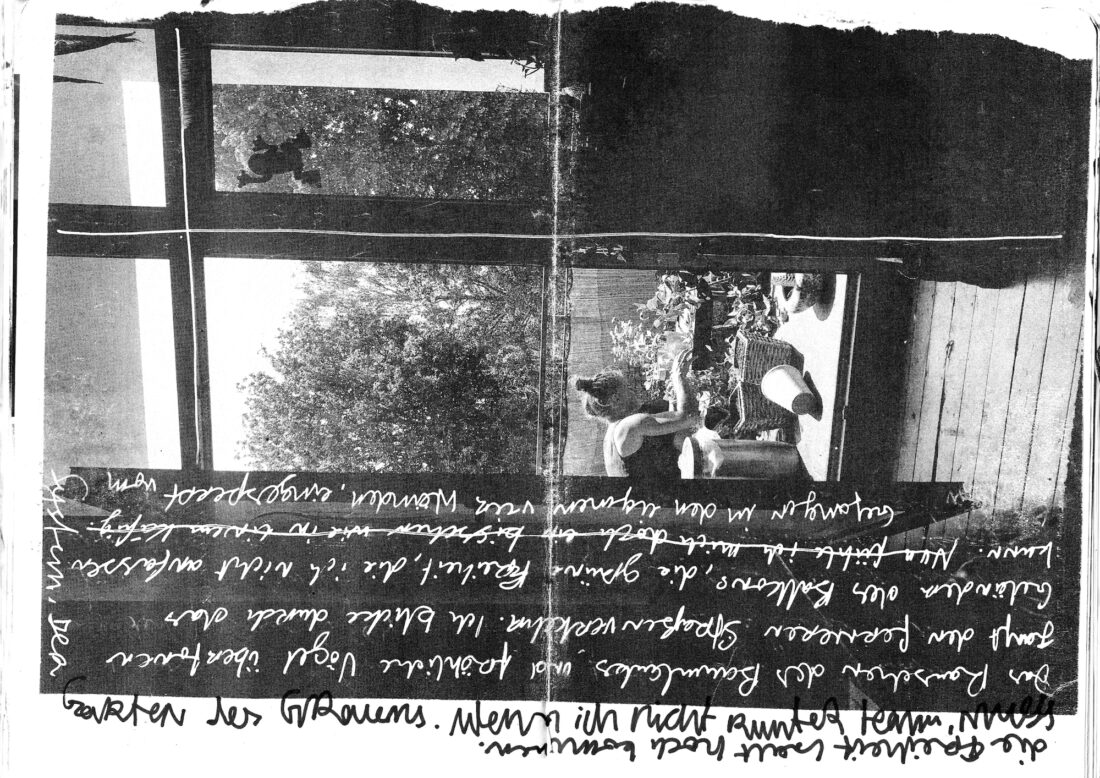 Das Rauschen des Baumlaubes, und fröhliche Vögel übertönen
sanft den ferneren Straßenverkehr. Ich blicke durch das
Geländer des Balkons, die grüne Freiheit, die ich nicht anfassen
kann. Nun fühle ich mich doch ein bisschen wie in einem Käfig.
Gefangen in den eigenen vier Wänden, eingesperrt vom
System. Der
Garten des Grauens. Wenn ich nicht runter kann, muss
die Freiheit halt hoch kommen.